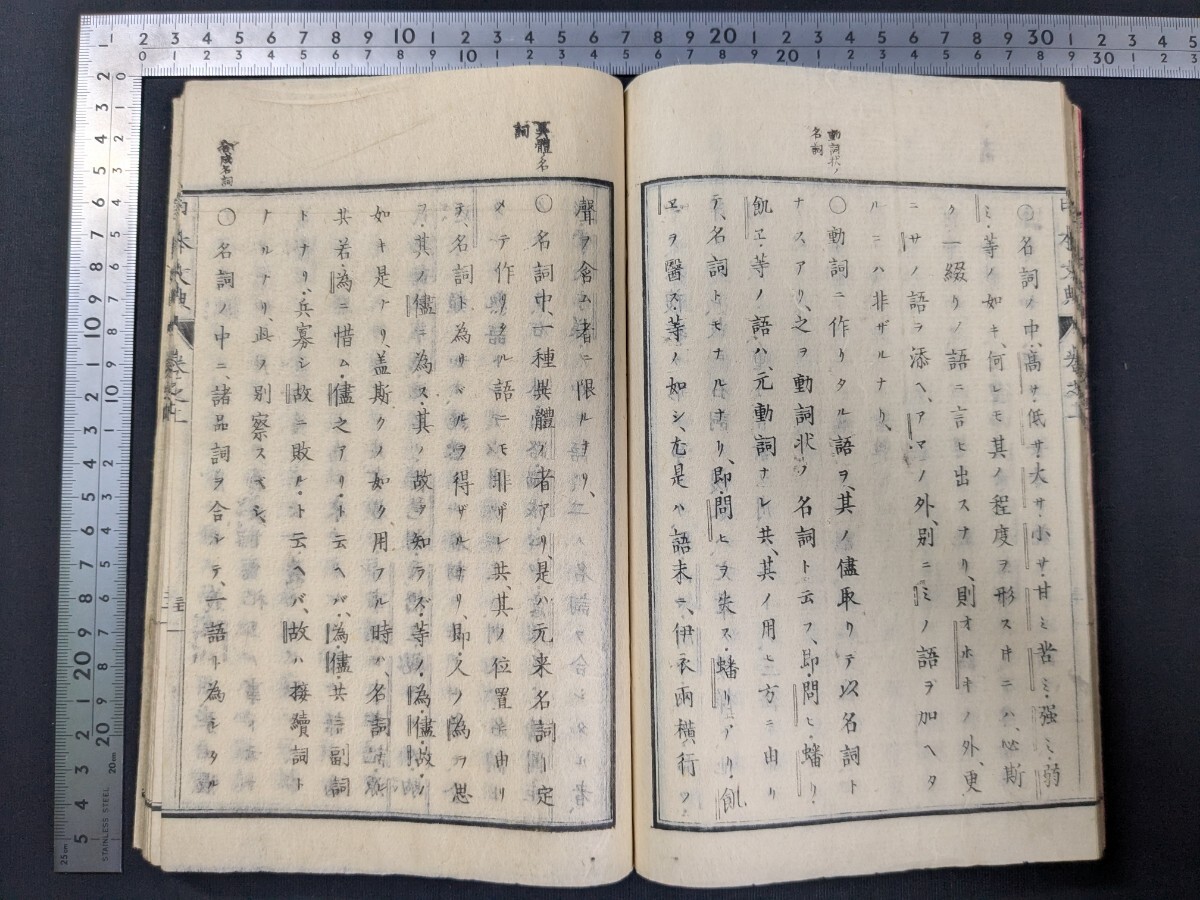 動詞状ノ
名詞
〇名詞ノ中、高サ・低サ・大サ・小サ・甘ミ・苦ミ・強ミ・弱
ミ・等ノ如キ、何レモ其ノ程度ヲ形スキニハ、必斯
ク一綴リノ語ニ言ヒ出スナリ、則オホキノ外、更
ニサノ語ヲ添ヘ、アマノ外、別ニミノ語ヲ加ヘタ
ルニハ非ザルナリ、
〇動詞ニ作リタル語ヲ、其ノ儘取リテ以名詞ト
ナスアリ、之ヲ動詞状ノ名詞ト云フ、即・問ヒ・蟠リ・
飢ヱ・等ノ語ハ、元動詞ナレ共、其ノ用ヒ方ニ由リ
テ、名詞トモナルナリ、即・問ヒヲ失ス・蟠リ・ノリ・飢
ヱヲ醫ス・等ノ如シ、尤是ハ語末ニ、伊衣兩横行ノ
異體名
詞
合成名詞
聲ヲ含ム者ニ限ルナリ、
〇名詞中、一種異體ノ者アリ、是ハ元来名詞ト定
メテ作リタル語ニモ非ザレ共、其ノ位置ニ由リ
テ、名詞ト為サヾルヲ得ザルナリ、即・人ノ為ヲ思
フ・其ノ儘ニ為ス・其ノ故ヲ知ラズ・等ノ・為・儘・故・ノ
如キ是ナリ、盖斯クノ如ク、用フル時ハ、名詞ナレ
共、若・為ニ惜ム・儘之アリ・ト云ヘバ、為・儘・共ニ副詞
トナリ、兵寡シ故ニ敗ル・ト云ヘバ、故ハ接續詞ト
ナルナリ、此ヲ別察スベシ、
〇名詞ノ中ニ、諸品詞ヲ合シテ、一語ト為シタル
日本文典
巻之上